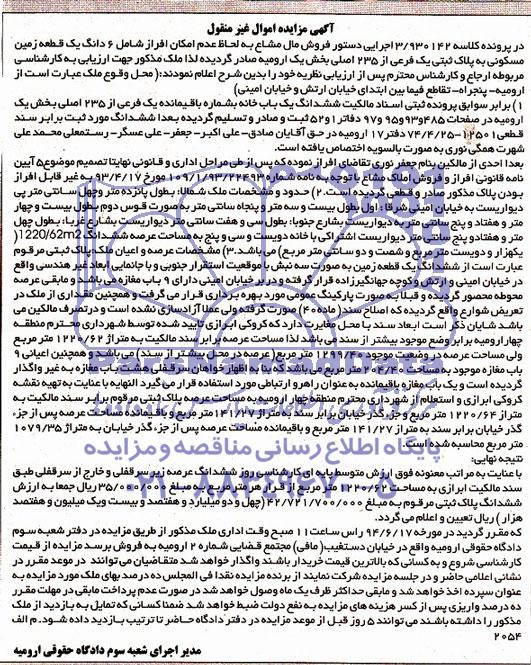 آگهی مزایده اموال غیر منقول
در پرونده کلاسه ۳/۹۳۰۱۴۲ اجرایی دستور فروش مال مشاع به لحاظ عدم امکان افراز شامل ۶ دانگ یک قطعه زمین
مسکونی به پلاک ثبتی یک فرعی از ۲۳۵ اصلی بخش یک ارومیه صادر گردیده لذا ملک مذکور جهت ارزیابی به کارشناسی
مربوطه ارجاع و کارشناس محترم پس از ارزیابی نظریه خود را بدین شرح اعلام نمودند: (محل وقوع ملک عبارت است از
ارومیه- پنجراه- تقاطع فیما بین ابتدای خیابان ارتش و خیابان امینی)
۱) برابر سوابق پرونده ثبتی اسناد مالکیت ششدانگ یک باب خانه بشماره باقیمانده یک فرعی از ۲۳۵ اصلی بخش یک
ارومیه در صفحات ۴۸۵ و ۹۳ و ۹۵ و ۹۷ دفاتر ۱ و ۵۲ ثبت و صادر و تسلیم گردیده بعدا ششدانگ مورد ثبت برابر سند
قطعی ۱۲۵۰۱-۷۴/۴/۲۵ دفتر ۱۷ ارومیه در حق آقایان صادق- علی اکبر- جعفر- علی عسگر- رستمعلی محمد علی
شهرت همگی نوری به صورت بالسویه اختصاص یافته است.
بعدا احدی از مالکین بنام جعفر نوری تقاضای افراز نموده که پس از طی مراحل اداری و قانونی نهایتا تصمیم موضوع ۵ آیین
نامه قانونی افراز و فروش املاک مشاع با توجه به نامه شماره ۱۰۹/۱/۹۳/۲۲۴۹۳ مورخ ۹۳/۴/۱۷ به غیر قابل افراز
بودن پلاک مذکور صادر و قطعی گردیده است. ۲) حدود و مشخصات ملک شمالا: بطول پانزده متر و چهل سانتی متر پی
دیواریست به خیابان امینی شرقا: اول بطول بیست و سه متر و پنجاه سانتی متر به صورت قوس دوم بطول بیست و چهار
متر و هفتاد و پنج سانتی متر به دیواریست بشارع جنوبا: بطول سی و هفت سانتی متر دیواریست بشارع غربا: بطول چهل
متر و هفتاد و پنج سانتی متر دیواریست اشتراکی با خانه دویست و سی و پنج به مساحت عرصه ششدانگ 1220/62m2(
یکهزار و دویست متر مربع و شصت و دو سانتی متر مربع) می باشد. ۳) مشخصات عرصه و اعیان ملک پلاک ثبتی مرقوم
عبارت است از ششدانگ یک قطعه زمین به صورت سه نبش با موقعیت استقرار جنوبی و با جانمایی ابعاد غیر هندسی واقع
در خیابان امینی و ارتش و کوچه جهانگیرزاده قرار گرفته و در بر خیابان امینی دارای ۹ باب مغازه می باشد و مابقی عرصه
محوطه محصور گردیده و قبلا به صورت پارکینگ عمومی مورد بهره برداری قرار می گرفت و همچنین مقداری از ملک در
تعریض شوارع واقع گردیده که اصلاح سند (ماده ۴۵) صورت گرفته ولی عملا آزادسازی نشده است و در تصرف مالکین می
باشد شایان ذکر است ابعاد سند با محل مغایرت دارد که کروکی ابرازی تایید شده توسط شهرداری محترم منطقه
چهار ارومیه برابر وضع موجود بیشتر از سند می باشد لذا مساحت عرصه برابر سند مالکیت به متراژ ۱۲۲۰/۶۲ متر مربع
ولی مساحت عرصه در وضعیت موجود ۱۲۹۹/۴۰ متر مربع (عرصه در محل بیشتر از سند) می باشد و همچنین اعیانی ۹
باب مغازه موجود به مساحت ۲۰۴/۴۰ متر مربع می باشد که بنا به اظهار خواهان سرقفلی هشت باب مغازه به غیر واگذار
گردیده است و یک باب مغازه باقیمانده به عنوان راهرو ارتباطی مورد استفاده قرار می گیرد النهایه با عنایت به تهیه نقشه
کروکی ابرازی و استعلام از شهرداری محترم منطقه چهار ارومیه به مساحت عرصه پلاک ثبتی مرقوم برابر سند مالکیت به
متراژ ۱۲۲۰/۶۴ متر مربع و جزء گذر خیابان برابر سکا به متراژ ۱۴۱/۲۷ متر مربع و باقیمانده مساحت عرصه پس از جزء
گذر خیابان برابر سند به متراژ ۱۴۱/۲۷ متر مربع و باقیمانده مساحت عرصه پس از جزء گذر خیابان به متراژ ۱۰۷۹/۳۵
متر مربع محاسبه شده است.
نتیجه نهایی:
با عنایت به مراتب معنونه فوق ارزش متوسط پایه ای کارشناسی روز ششدانگ عرصه زیر سرقفلی و خارج از سرقفلی طبق
سند مالکیت ابرازی به مساحت ۱۲۲۰/۶۲ متر مربع از قرار هر متر مربع به مبلغ ۳۵/۰۰۰/۰۰۰ ریال جمعا به ارزش
ششدانگ پلاک ثبتی مرقوم به مبلغ ۴۲/۷۲۱/۷۰۰/۰۰۰ (چهل و دو میلیارد و هفتصد و بیست و یک میلیون و هفتصد
هزار) ریال تعیین و اعلام می گردد.
که مقرر گردید در مورخه ۹۴/۶/۱۷ راس ساعت ۱۱ صبح وقت اداری ملک مذکور از طریق مزایده در دفتر شعبه سوم
دادگاه حقوقی ارومیه واقع در خیابان دستغیب (مافی) مجتمع قضایی شماره ۲ ارومیه به فروش برسد مزایده از قیمت
کارشناسی شروع و به کسانی که بالاترین قیمت خریدار باشند واگذار خواهد شد متقاضیان می توانند در موعد مقرر در
نشانی اعلامی حاضر و در جلسه مزایده شرکت نمایند از برنده مزایده نقدا فی المجلس ده درصد بهای ملک مورد مزایده به
عنوان سپرده اخذ خواهد شد و مابقی حداکثر ظرف یک ماه وصول خواهد شد در صورت عدم پرداخت مابقی در مهلت مقرر
ده درصد واریزی پس از کسر هزینه های مزایده به نفع دولت ضبط خواهد شد ضمنا کسانی که تمایل به بازدید از ملک
مذکور را داشته باشند می توانند ۵ روز قبل از موعد مزایده در دفتر دادگاه حاضر تا ترتیب بازدید داده شود. م الف
۲۰۵۴
مدیر اجرای شعبه سوم دادگاه حقوقی ارومیه
پایگاه اطلاع رسانی مناقصه و مزایده